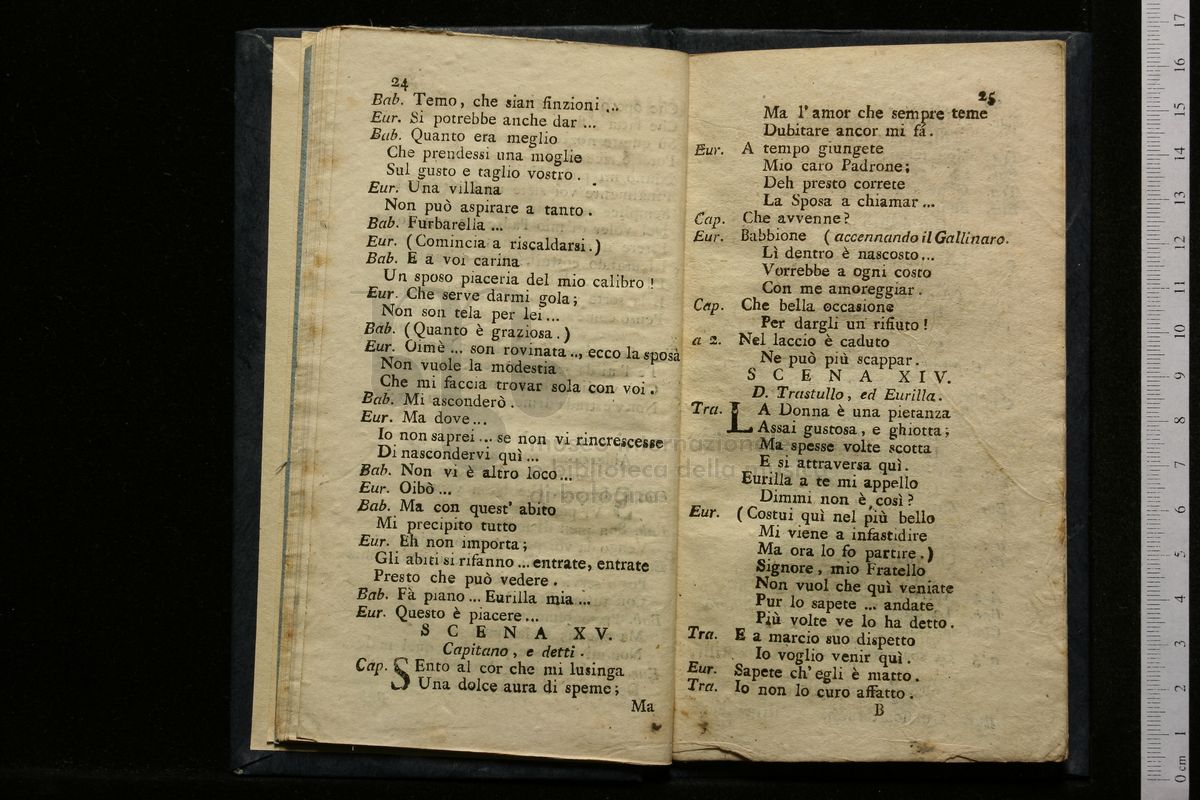 24
Bab. Temo, che sian finzioni ...
Eur. Si potrebbe anche dar ...
Bab. Quanto era meglio
Che prendessi una moglie
Sul gusto e taglio vostro.
Eur. Una villana
Non può aspirare a tanto.
Bab. Furbarella ...
Eur. (Comincia a riscaldarsi.)
Bab. E a voi carina
Un sposo piaceria del mio calibro!
Eur. Che serve darmi gola;
Non son tela per lei...
Bab. (Quanto è graziosa.)
Eur. Oimè ... son rovinata .., ecco la sposa
Non vuole la modestia
Che mi faccia trovar sola con voi.
Bab. Mi asconderò.
Eur. Ma dove...
Io non saprei ... se non vi rincrescesse
Di nascondervi quì...
Bab. Non vi è altro loco...
Eur. Oibò ...
Bab. Ma con quest' abito
Mi precipito tutto
Eur. Eh non importa;
Gli abiti si rifanno ... entrate, entrate
Presto che può vedere.
Bab. Fà piano ... Eurilla mia ...
Eur. Questo è piacere...
SCENA XV.
Capitano, e detti.
Cap. SEnto al cor che mi lusinga
Una dolce aura di speme;
Ma
25
Ma l'amor che sempre teme
Dubitare ancor mi fá.
Eur. A tempo giungete
Mio caro Padrone;
Deh presto correte
La Sposa a chiamar ...
Cap. Che avvenne?
Eur. Babbione (accennando il Gallinaro.
Lì dentro è nascosto...
Vorrebbe a ogni costo
Con me amoreggiar.
Cap. Che bella occasione
Per dargli un rifiuto!
a 2. Nel laccio è caduto
Ne può più scappar.
SCENA XIV.
D. Trastullo, ed Eurilla.
Tra. LA Donna è una pietanza
Assai gustosa, e ghiotta;
Ma spesse volte scotta
E si attraversa quì.
Eurilla a te mi appello
Dimmi non è così?
Eur. (Costui quì nel più bello
Mi viene a infastidire
Ma ora lo fo partire.)
Signore, mio Fratello
Non vuol che quì veniate
Pur lo sapete ... andate
Più volte ve lo ha detto.
Tra. E a marcio suo dispetto
Io voglio venir quì.
Eur. Sapete ch' egli è matto.
Tra. Io non lo curo affatto.
B